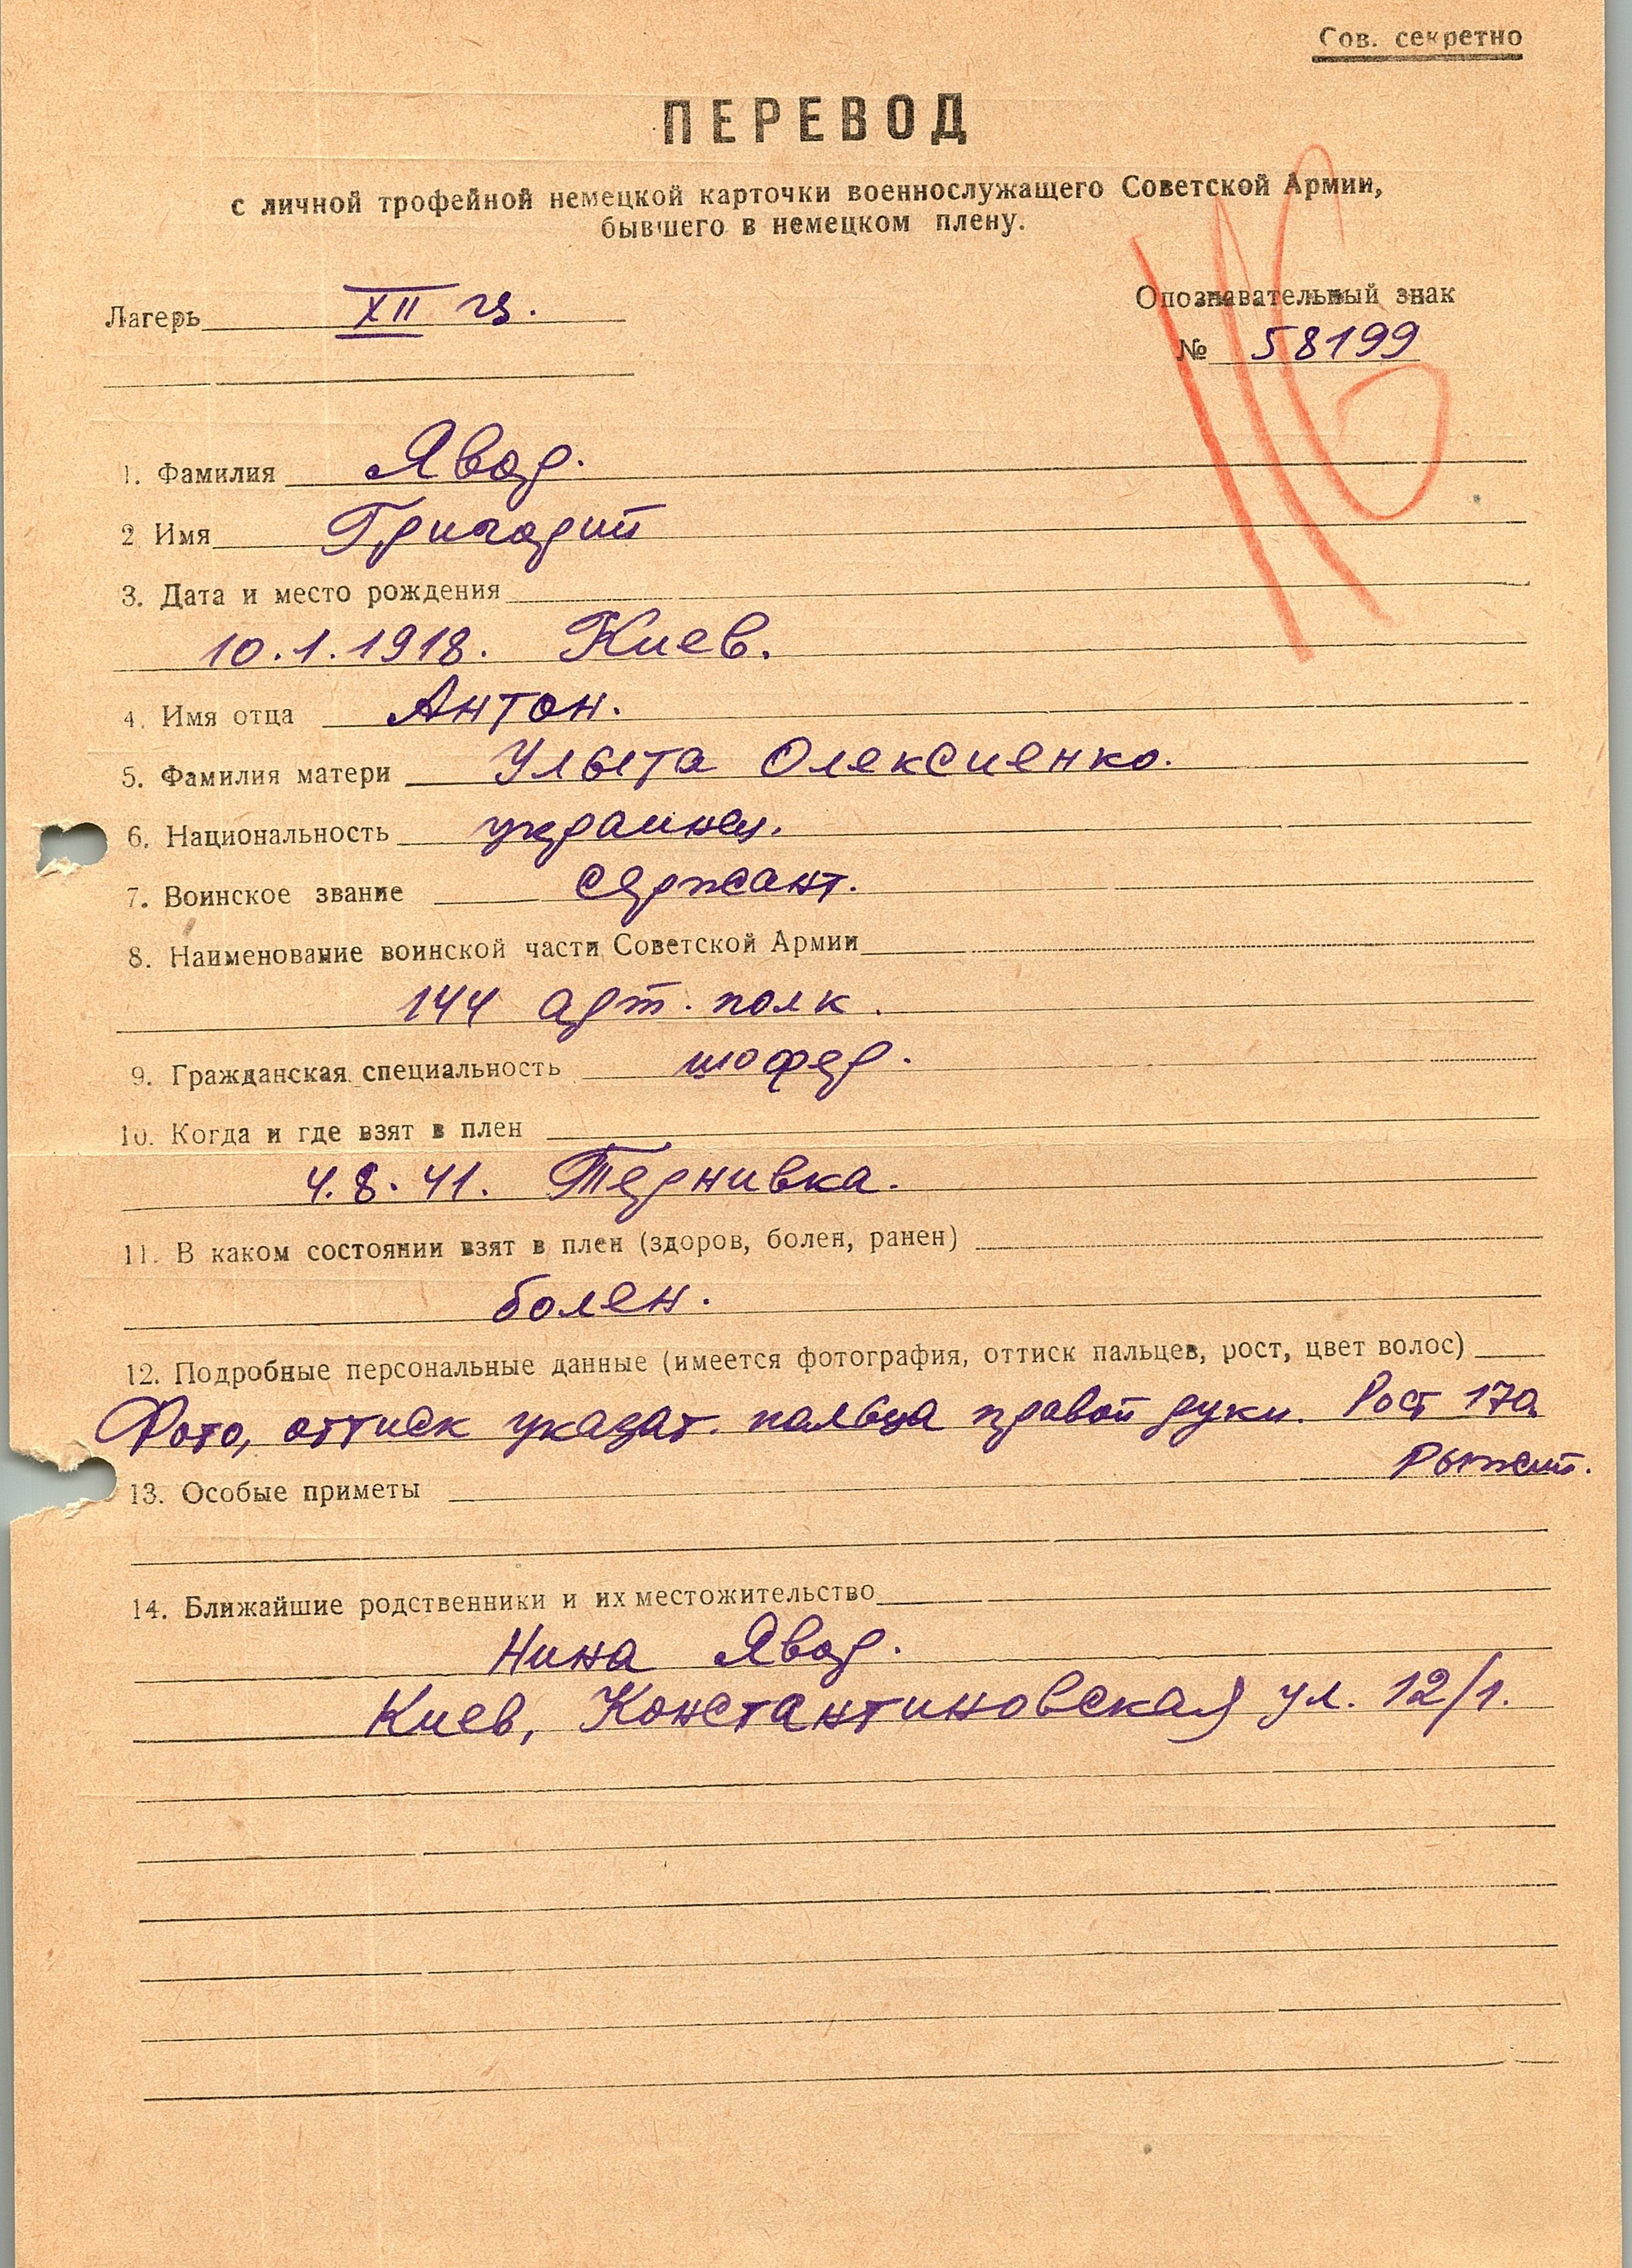 Сов. секретно
ПЕРЕВОД
с личной трофейной немецкой карточки военнослужащего Советской Армии,
бывшего в немецком плену.
Лагерь XII
Опознавательный знак
№ 58199
1. Фамилия Явор.
2 Имя Григорий
3. Дата и место рождения
10.1.1918. Киев.
4. Имя отца Антон.
5. Фамилия матери Ульита Олексиенко.
6. Национальность украинец.
7. Воинское звание сержант.
8. Наименование воинской части Советской Армии
144 арт. полк.
9. Гражданская специальность шофер.
10. Когда и где взят в плен
4.8.41. Тернивка.
11. В каком состоянии взят в плен (здоров, болен, ранен)
болен.
12. Подробные персональные данные (имеется фотография, оттиск пальцев, рост, цвет волос)
Фото, оттиск указат. пальца правой руки. Рост 170.
Рыжий.
13. Особые приметы
14. Ближайшие родственники и их местожительство
Нина Явор.
Киев, Константиновская ул. 12/1.